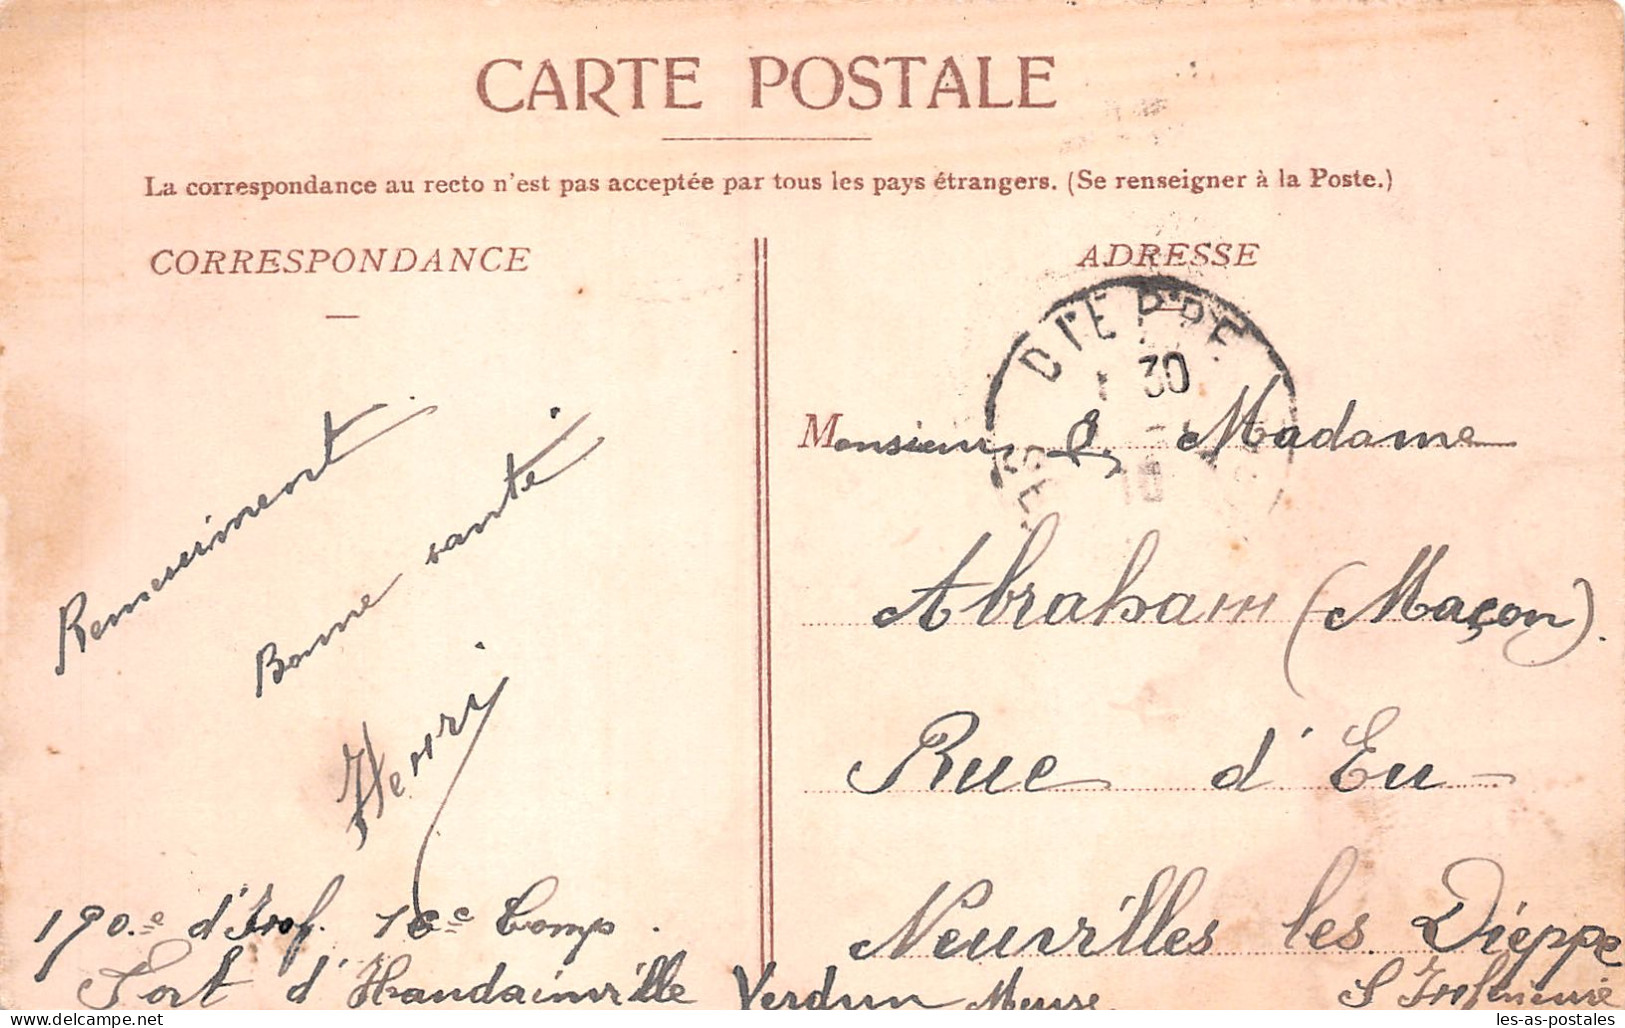 CARTE POSTALE
La correspondance au recto n'est pas acceptée par tous les pays étrangers. (Se renseigner à la Poste.)
CORRESPONDANCE
Bonne santé
Henri
16e Comp.
Fort d'Haudainville Verdun Meuse
ADRESSE
DIEPPE
30
Monsieur & Madame
Abraham (Maçon).
Rue d'Eu
Neuvilles les Dieppe
S Inférieure
les-as-postales